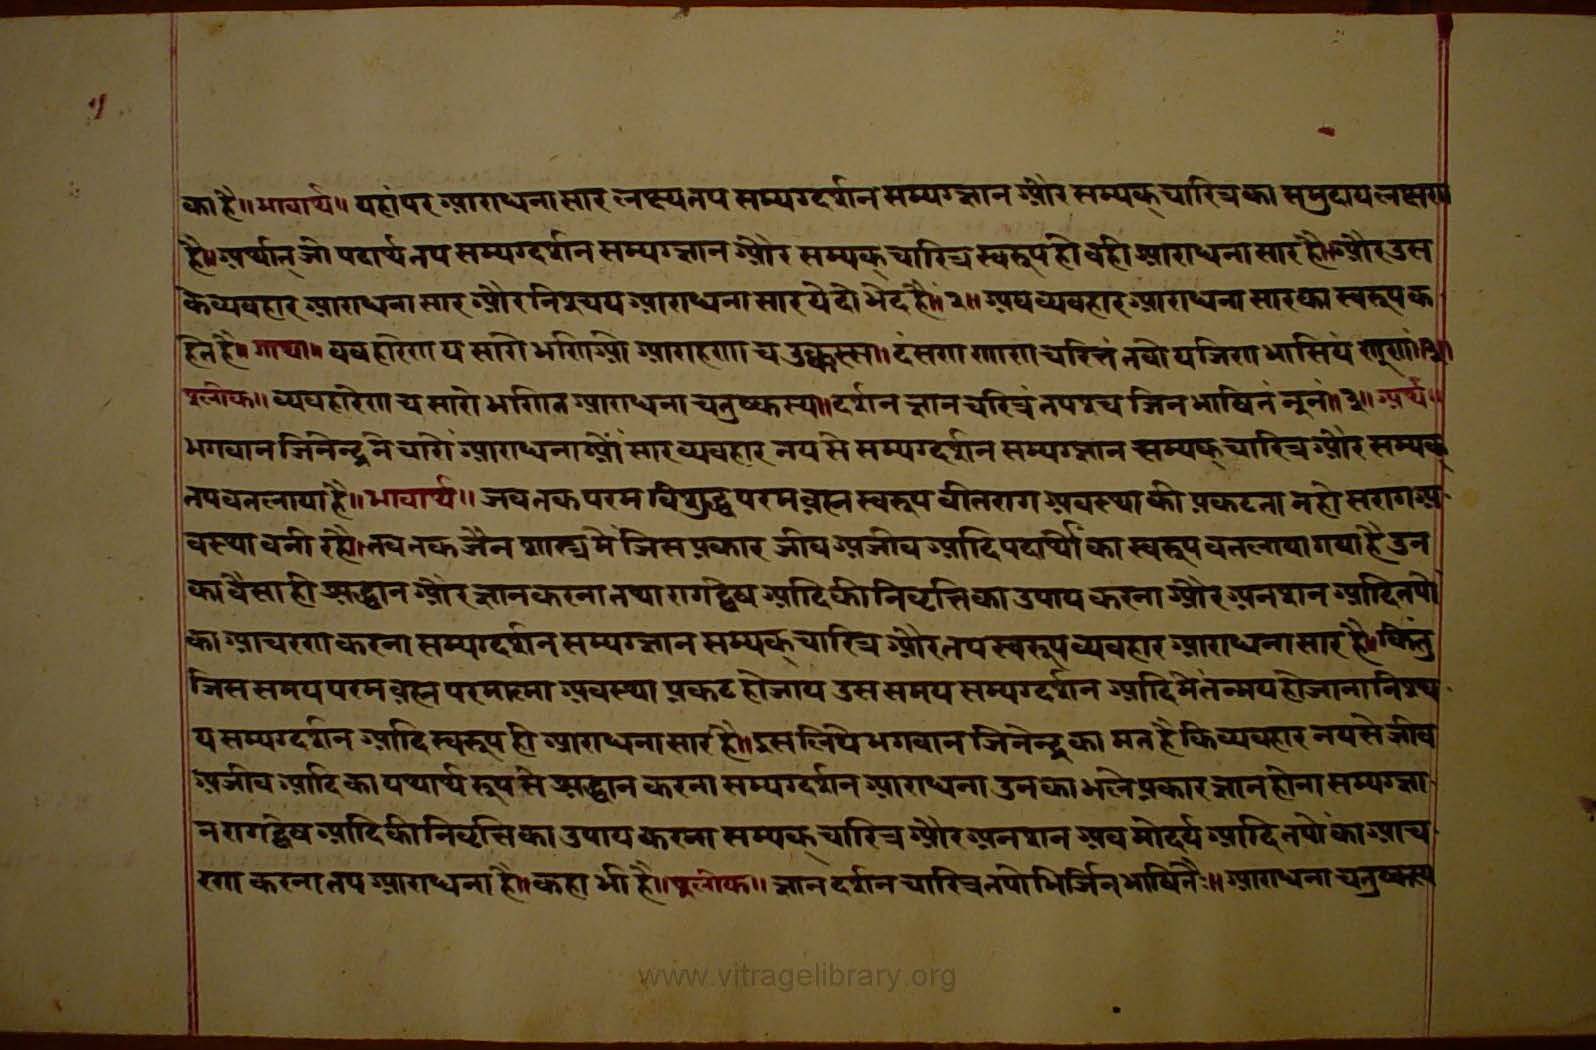 का है॥ भावार्थ॥ यहां पर आराधनासार लक्ष्य तप सम्यग्दर्शन सम्यग्ज्ञान और सम्यक् चारित्र का समुदाय लक्षण
है॥ अर्थात् जो पदार्थ तप सम्यग्दर्शन सम्यग्ज्ञान और सम्यक् चारित्र स्वरूप हो वही आराधनासार है॥ और उस
के व्यवहार आराधनासार और निश्चय आराधनासार ये दो भेद हैं॥ २॥ अब व्यवहार आराधनासार का स्वरूप क
हते हैं॥ गाथा॥ ववहारेण य सारो भणिओ आराहणा चउक्कस्स॥ दंसण णाण चरित्तं तवो य जिण भासियं णूणं॥ ३॥
श्लोक॥ व्यवहारेण च सारो भणित आराधना चतुष्कस्य॥ दर्शन ज्ञान चरित्रं तपश्च जिन भाषितं नूनं॥ ३॥ अर्थ॥
भगवान जिनेन्द्र ने चारों आराधनाओं सार व्यवहार नय से सम्यग्दर्शन सम्यग्ज्ञान सम्यक् चारित्र और सम्यक्
तप बतलाया है॥ भावार्थ॥ जब तक परम विशुद्ध परम ब्रह्म स्वरूप वीतराग अवस्था की प्रकटता न हो सराग अ
वस्था बनी रहै॥ तब तक जैन शास्त्र में जिस प्रकार जीव अजीव आदि पदार्थों का स्वरूप बतलाया गया है उन
का वैसा ही श्रद्धान और ज्ञान करना तथा राग द्वेष आदि की निवृत्ति का उपाय करना और अनशन आदि तपों
का आचरण करना सम्यग्दर्शन सम्यग्ज्ञान सम्यक् चारित्र और तप स्वरूप व्यवहार आराधनासार है॥ किंतु
जिस समय परम ब्रह्म परमात्मा अवस्था प्रकट हो जाय उस समय सम्यग्दर्शन आदि में तन्मय हो जाना निश्च
य सम्यग्दर्शन आदि स्वरूप ही आराधनासार है॥ इस लिये भगवान जिनेन्द्र का मत है कि व्यवहार नय से जीव
अजीव आदि का यथार्थ रूप से श्रद्धान करना सम्यग्दर्शन आराधना उन का भले प्रकार ज्ञान होना सम्यग्ज्ञा
न राग द्वेष आदि की निवृत्ति का उपाय करना सम्यक् चारित्र और अनशन अवमोदर्य आदि तपों का आच
रण करना तप आराधना है॥ कहा भी है॥ श्लोक॥ ज्ञान दर्शन चारित्र तपोभिर्जिन भाषितैः॥ आराधना चतुष्कस्य
www.vitragelibrary.org